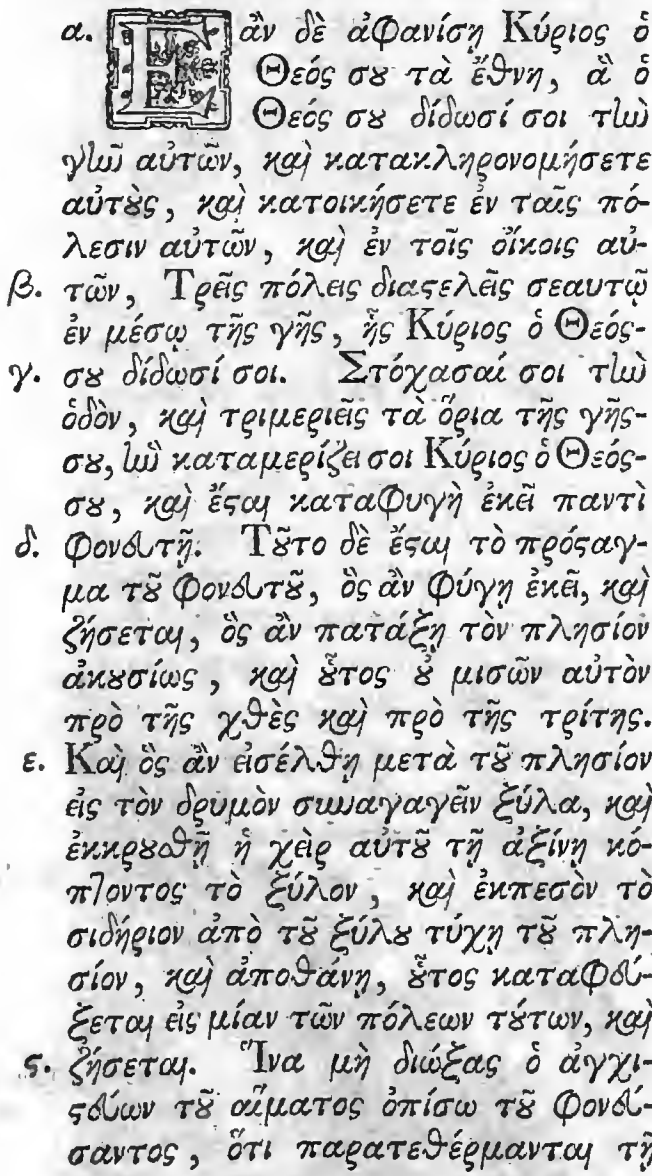 α. Ἐὰν δὲ ἀφανίσῃ Κύριος ὁ
Θεός σου τὰ ἔθνη, ἃ ὁ
Θεός σου δίδωσί σοι τὴν
γῆν αὐτῶν, καὶ κατακληρονομήσετε
αὐτοὺς, καὶ κατοικήσετε ἐν ταῖς πό-
λεσιν αὐτῶν, καὶ ἐν τοῖς οἴκοις αὐ-
β. τῶν, Τρεῖς πόλεις διαστελεῖς σεαυτῷ
ἐν μέσῳ τῆς γῆς, ἧς Κύριος ὁ Θεός-
γ. σου δίδωσί σοι. Στόχασαί σοι τὴν
ὁδὸν, καὶ τριμεριεῖς τὰ ὅρια τῆς γῆς-
σου, ἣν καταμερίζει σοι Κύριος ὁ Θεός-
σου, καὶ ἔσται καταφυγὴ ἐκεῖ παντὶ
δ. φονευτῇ. Τοῦτο δὲ ἔσται τὸ πρόσταγ-
μα τοῦ φονευτοῦ, ὃς ἂν φύγῃ ἐκεῖ, καὶ
ζήσεται, ὃς ἂν πατάξῃ τὸν πλησίον
ἀκουσίως, καὶ οὗτος οὐ μισῶν αὐτὸν
πρὸ τῆς χθὲς καὶ πρὸ τῆς τρίτης.
ε. Καὶ ὃς ἂν εἰσέλθῃ μετὰ τοῦ πλησίον
εἰς τὸν δρυμὸν συναγαγεῖν ξύλα, καὶ
ἐκκρουσθῇ ἡ χεὶρ αὐτοῦ τῇ ἀξίνῃ κό-
πτοντος τὸ ξύλον, καὶ ἐκπεσὸν τὸ
σιδήριον ἀπὸ τοῦ ξύλου τύχῃ τοῦ πλη-
σίον, καὶ ἀποθάνῃ, οὗτος καταφεύ-
ξεται εἰς μίαν τῶν πόλεων τούτων, καὶ
ϛ. ζήσεται. Ἵνα μὴ διώξας ὁ ἀγχι-
στεύων τοῦ αἵματος ὀπίσω τοῦ φονεύ-
σαντος, ὅτι παρατεθέρμανται τῇ